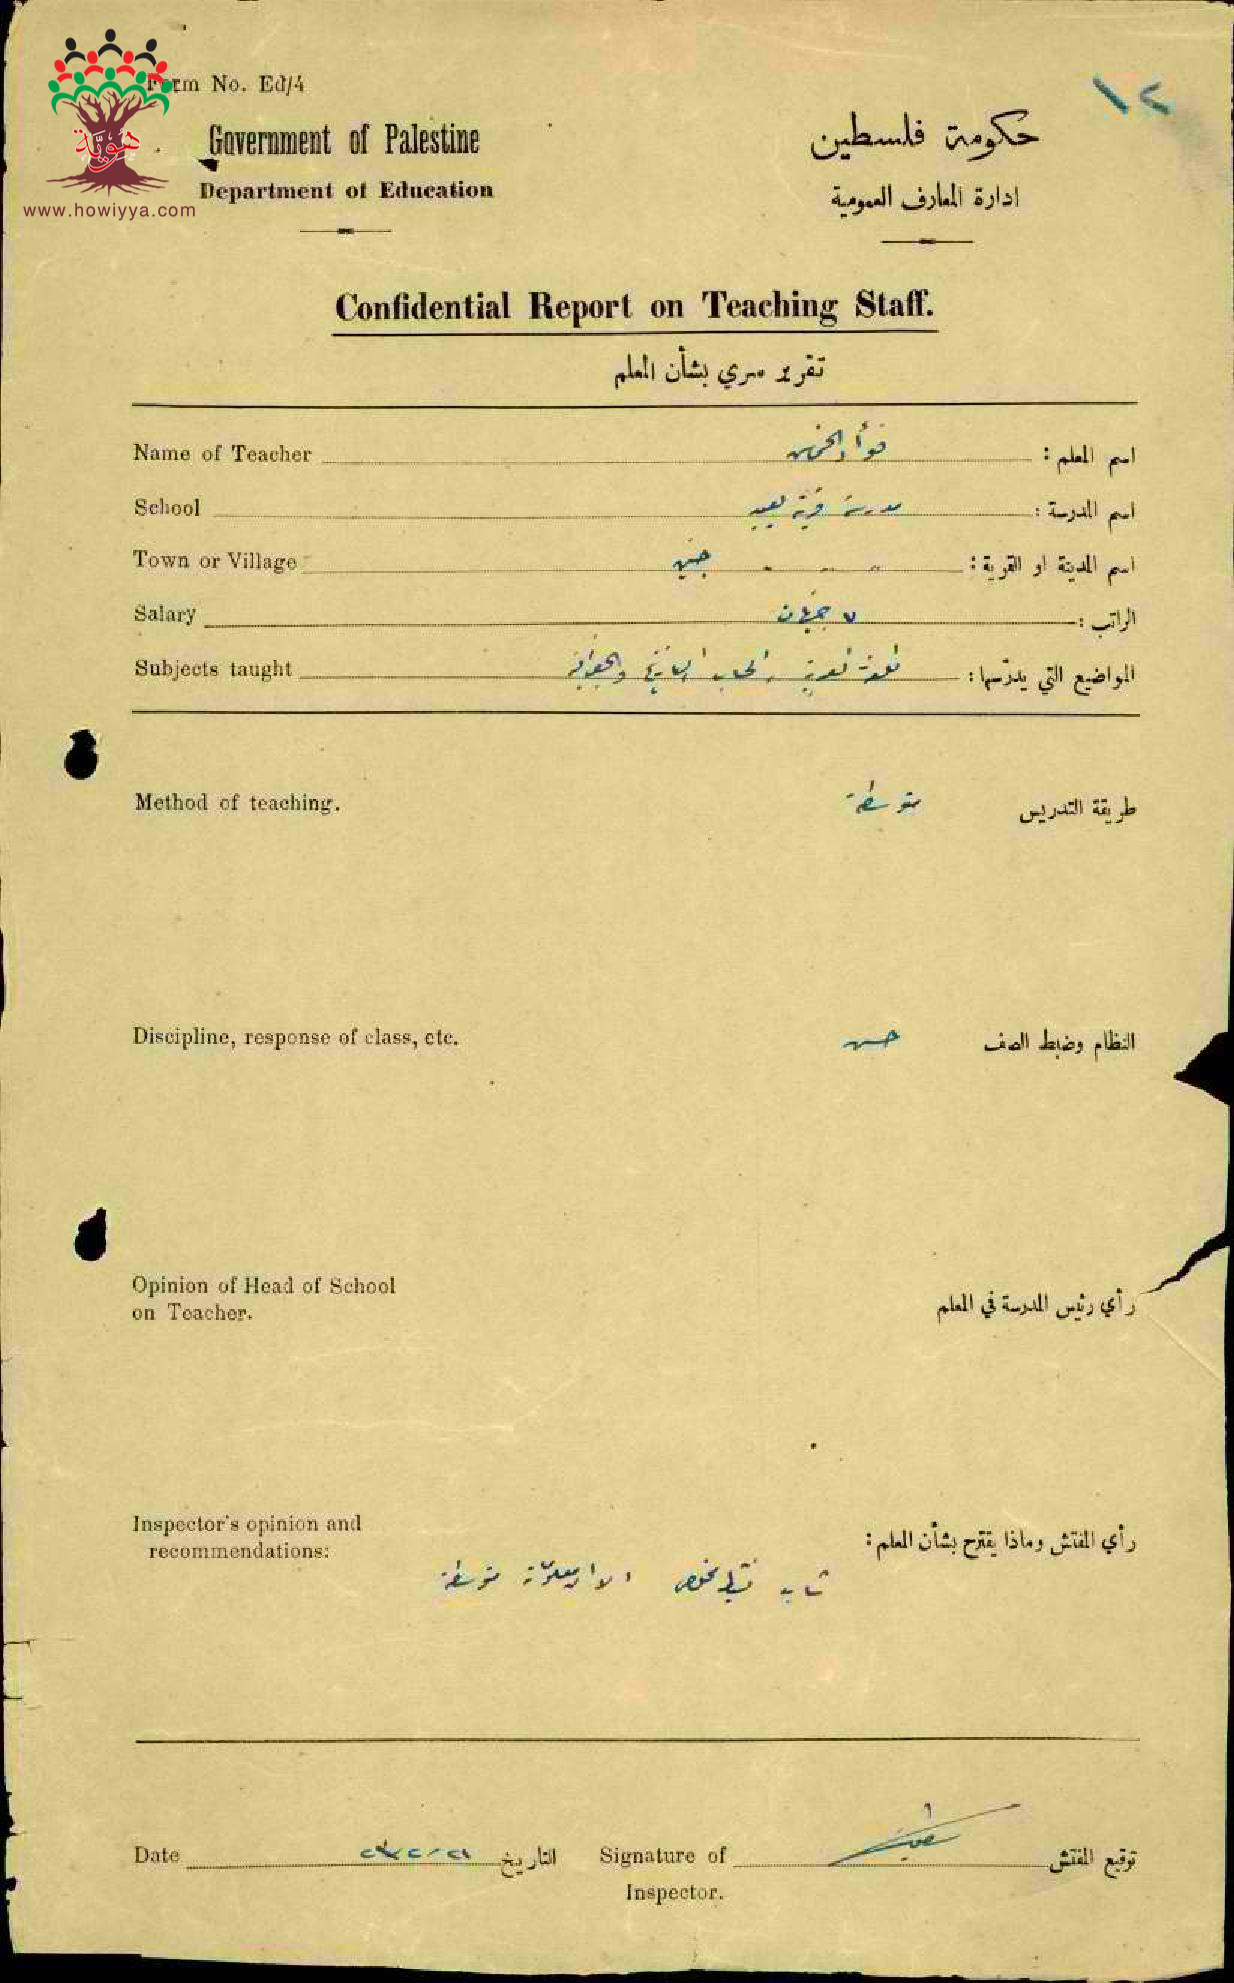 Form No. Ed/4
١٢
هوية
www.howiyya.com
Government of Palestine
حكومة فلسطين
Department of Education
ادارة المعارف العمومية
Confidential Report on Teaching Staff.
تقرير سري بشأن المعلم
Name of Teacher فؤاد اسم المعلم :
School مدرسة قرية يعبد اسم المدرسة :
Town or Village " " " جنين اسم المدينة او القرية :
Salary ٧ جنيهات الراتب :
Subjects taught اللغة العربية والحساب التاريخ والجغرافية المواضيع التي يدرّسها :
Method of teaching. متوسطة طريقة التدريس
Discipline, response of class, etc. حسن النظام وضبط الصف
Opinion of Head of School
on Teacher.
رأي رئيس المدرسة في المعلم
Inspector's opinion and
recommendations:
رأي المفتش وماذا يقترح بشأن المعلم :
شاب نشيط مخلص الا ان معلوماته متوسطة
Date التاريخ Signature of توقيع المفتش
Inspector.